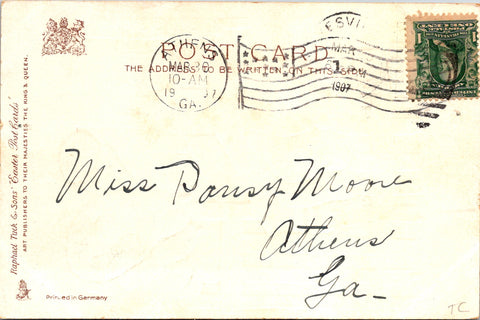 POST CARD
THE ADDRESS TO BE WRITTEN ON THIS SIDE
ATHENS
MAR 30
10-AM
1907
GA.
MAR
1907
Miss Pansy Moore
Athens
Ga-
Raphael Tuck & Sons' "Easter Post Cards"
ART PUBLISHERS TO THEIR MAJESTIES THE KING & QUEEN.
Printed in Germany
TC